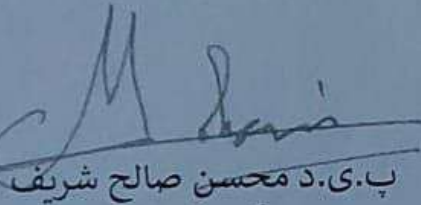 پ.ی.د محسن صالح شریف